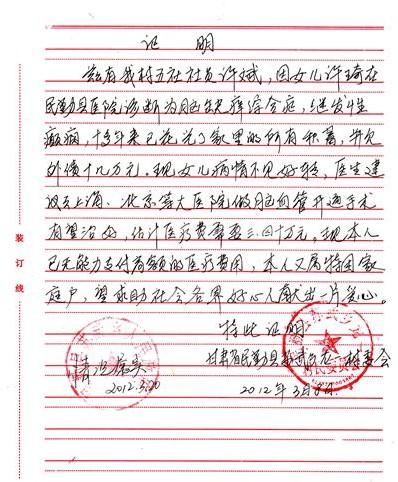 证 明
兹有我村五社社员许文斌,因女儿许琦在
民勤县医院诊断为脑缺瘫综合症,继发性
癫痫,十多年来已花光了家里的所有积蓄,并欠
外债十几万元。现女儿病情不见好转,医生建
议去上海、北京等大医院做脑血管开通手术
有望治好,估计医疗费需要三、四十万元。现本人
已无能力支付高额的医疗费用,本人又属特困家
庭户,望求助社会各界好心人献出一片爱心。
特此证明
甘肃省民勤县 村委会
2012年3月6日
情况属实
2012.3.20
装订线